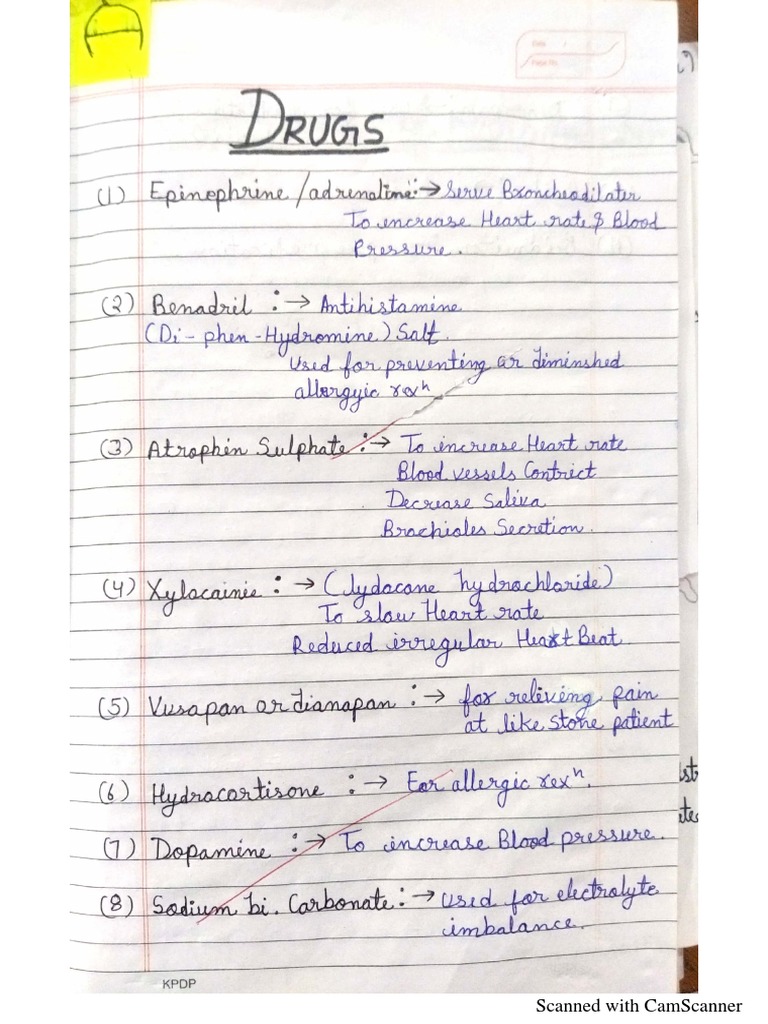 DRUGS
(1) Epinephrine/adrenaline:→ Serve Broncheadilater
To increase Heart rate & Blood
Pressure.
(2) Benadril :→ Antihistamine
(Di-phen-Hydromine) Salt.
Used for preventing or diminshed
allergyic rexⁿ
(3) Atrophin Sulphate:→ To increase Heart rate
Blood vessels Contrict
Decrease Saliva
Brachioles Secretion.
(4) Xylocainie :→ (lydocane hydrochloride)
To slow Heart rate
Reduced irregular Heart Beat
(5) Vusapan or dianapan :→ for reliving pain
at like stone patient
(6) Hydracortisone :→ For allergic rexⁿ.
(7) Dopamine :→ To increase Blood pressure.
(8) Sodium bi. Carbonate:→ Used for electrolyte
imbalance.
KPDP
Scanned with CamScanner